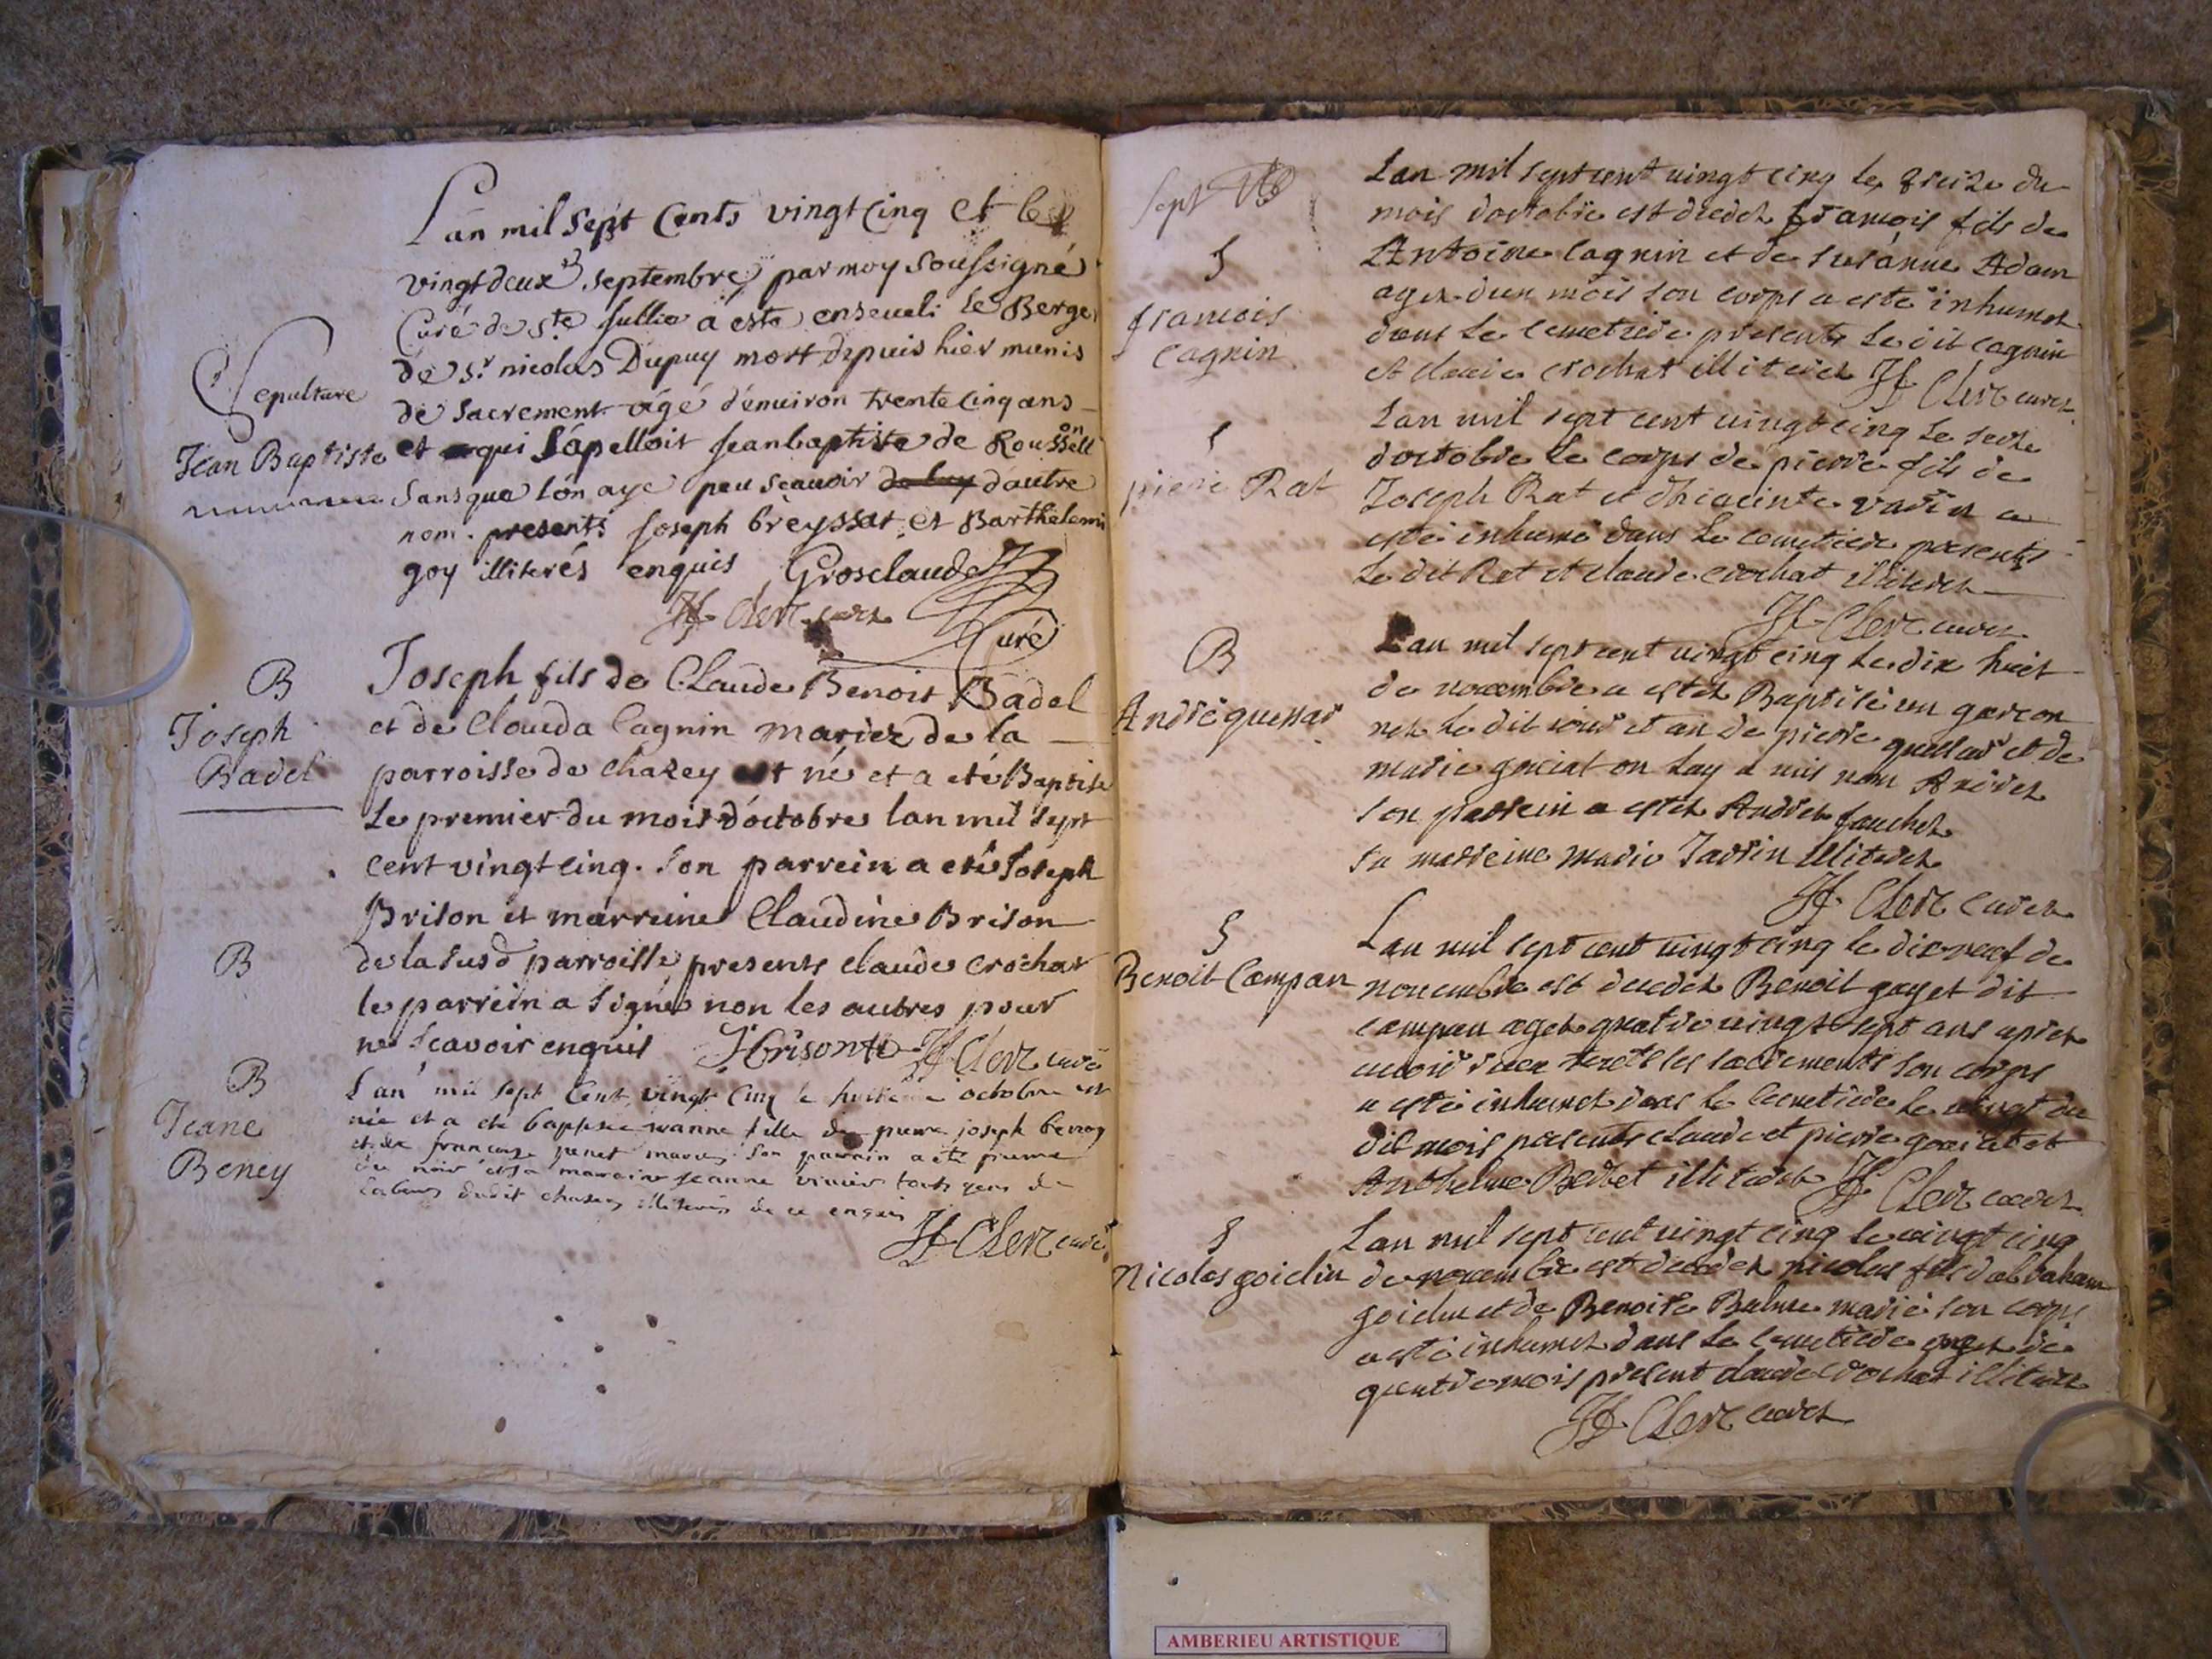 Sepulture
Jean Baptiste
Lan mil Sept Cents vingt Cinq et le
vingt deux septembre par moy Soussigné
Curé de Ste Jullie a esté enseveli le Berger
de Sr nicolas Dupuy mort depuis hier munis
de Sacrement âgé d'enuiron trente Cinq ans
et qui S'apelloit Jean baptiste de Roussellon
Sans que l'on aye peu sçauoir de luy d'autre
nom. presents Joseph breyssat et Barthelemi
goy illiterés enquis Grosclaude
Curé
JF Clerc curez
B
Joseph
Badel
Joseph fils de Claude Benoit Badel
et de Clauda Cagnin mariez de la
parroisse de chazey est né et a eté Baptisé
le premier du mois d'octobre lan mil sept
cent vingt cinq. son parrein a eté Joseph
Brison et marreine Claudine Brison
B
de la susd parroisse presents claude crochat
le parrein a signé non les autres pour
ne scavoir enquis JBrison JF Clerc curé
B
Jeane
Beney
L'an mil sept Cent vingt Cinq le huitieme octobre est
née et a eté baptisée jeanne fille de pierre joseph
et de francoise mariez son parrain a eté pierre
du noir et sa maraine jeanne tout gens de
dudit chazey illiterés de ce enquis
JF Clerc curé
Sept
S
francois
Cagnin
Lan mil sept cent vingt cinq le treize du
mois doctobre est decedez francois fils de
Antoine Cagnin et de susanne Adam
agez dun mois son corps a esté inhumez
dans le cemetiere presents le dit cagnin
et claude crochat illiterez JF Clerc curez
S
pierre Rat
Lan mil sept cent vingt cinq le seize
doctobre le corps de pierre fils de
Joseph Rat et dhiacinte varin a
esté inhumé dans le cemetiere presents
le dit Rat et claude crochat illiterez
JF Clerc curez
B
André quessar
Lan mil sept cent vingt cinq le dix huit
de novembre a estez Baptisé un garcon
nez le dit jour et an de pierre quessar et de
marie on luy a mis nom Andrez
son parrein a estez Andrez fauchez
sa marreine marie Jarrin illiterez
JF Clerc curez
S
Benoit Campan
Lan mil sept cent vingt cinq le dixneuf de
novembre est decedez Benoit gayet dit
campan agez quatre vingt sept ans aprez
avoir receu touts les sacrements son corps
a esté inhumez dans le cemetiere le vingt du
dit mois presents claude et pierre et
Anthelme Berret illiterez JF Clerc curez
S
Nicolas goiclin
Lan mil sept cent vingt cinq le vingt cinq
de novembre est decedez nicolas fils dabraham
goiclin et de Benoite Balme marié son corps
a esté inhumez dans le cemetiere agez de
quatre mois present claude crochat illiterez
JF Clerc curez
AMBERIEU ARTISTIQUE